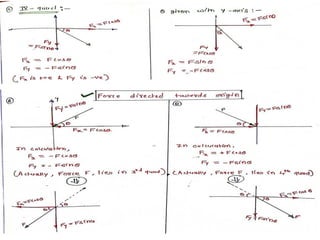 ① IV - quad :-
Fx = Fcosθ
θ
Fy
= Fsinθ
F
Fx = Fcosθ
Fy = - Fsinθ
(Fx is +ve & Fy is -ve)
θ given with y-axis :-
Fx = Fsinθ
θ
Fy
= Fcosθ
F
Fx = Fsinθ
Fy = - Fcosθ
✓ Force directed towards origin
Y
Fy = Fsinθ
F
θ
Fx = Fcosθ
In calculation,
Fx = - Fcosθ
Fy = - Fsinθ
(Actually, Force F, lies in 3rd quad)
Fx = Fcosθ
θ
F
Fy = Fsinθ
F
Fy = Fsinθ
θ
Fx = Fcosθ
In calculation,
Fx = + Fcosθ
Fy = - Fsinθ
(Actually, Force F, lies in 4th quad)
θ
Fx = Fcosθ
Fy = Fsinθ
F